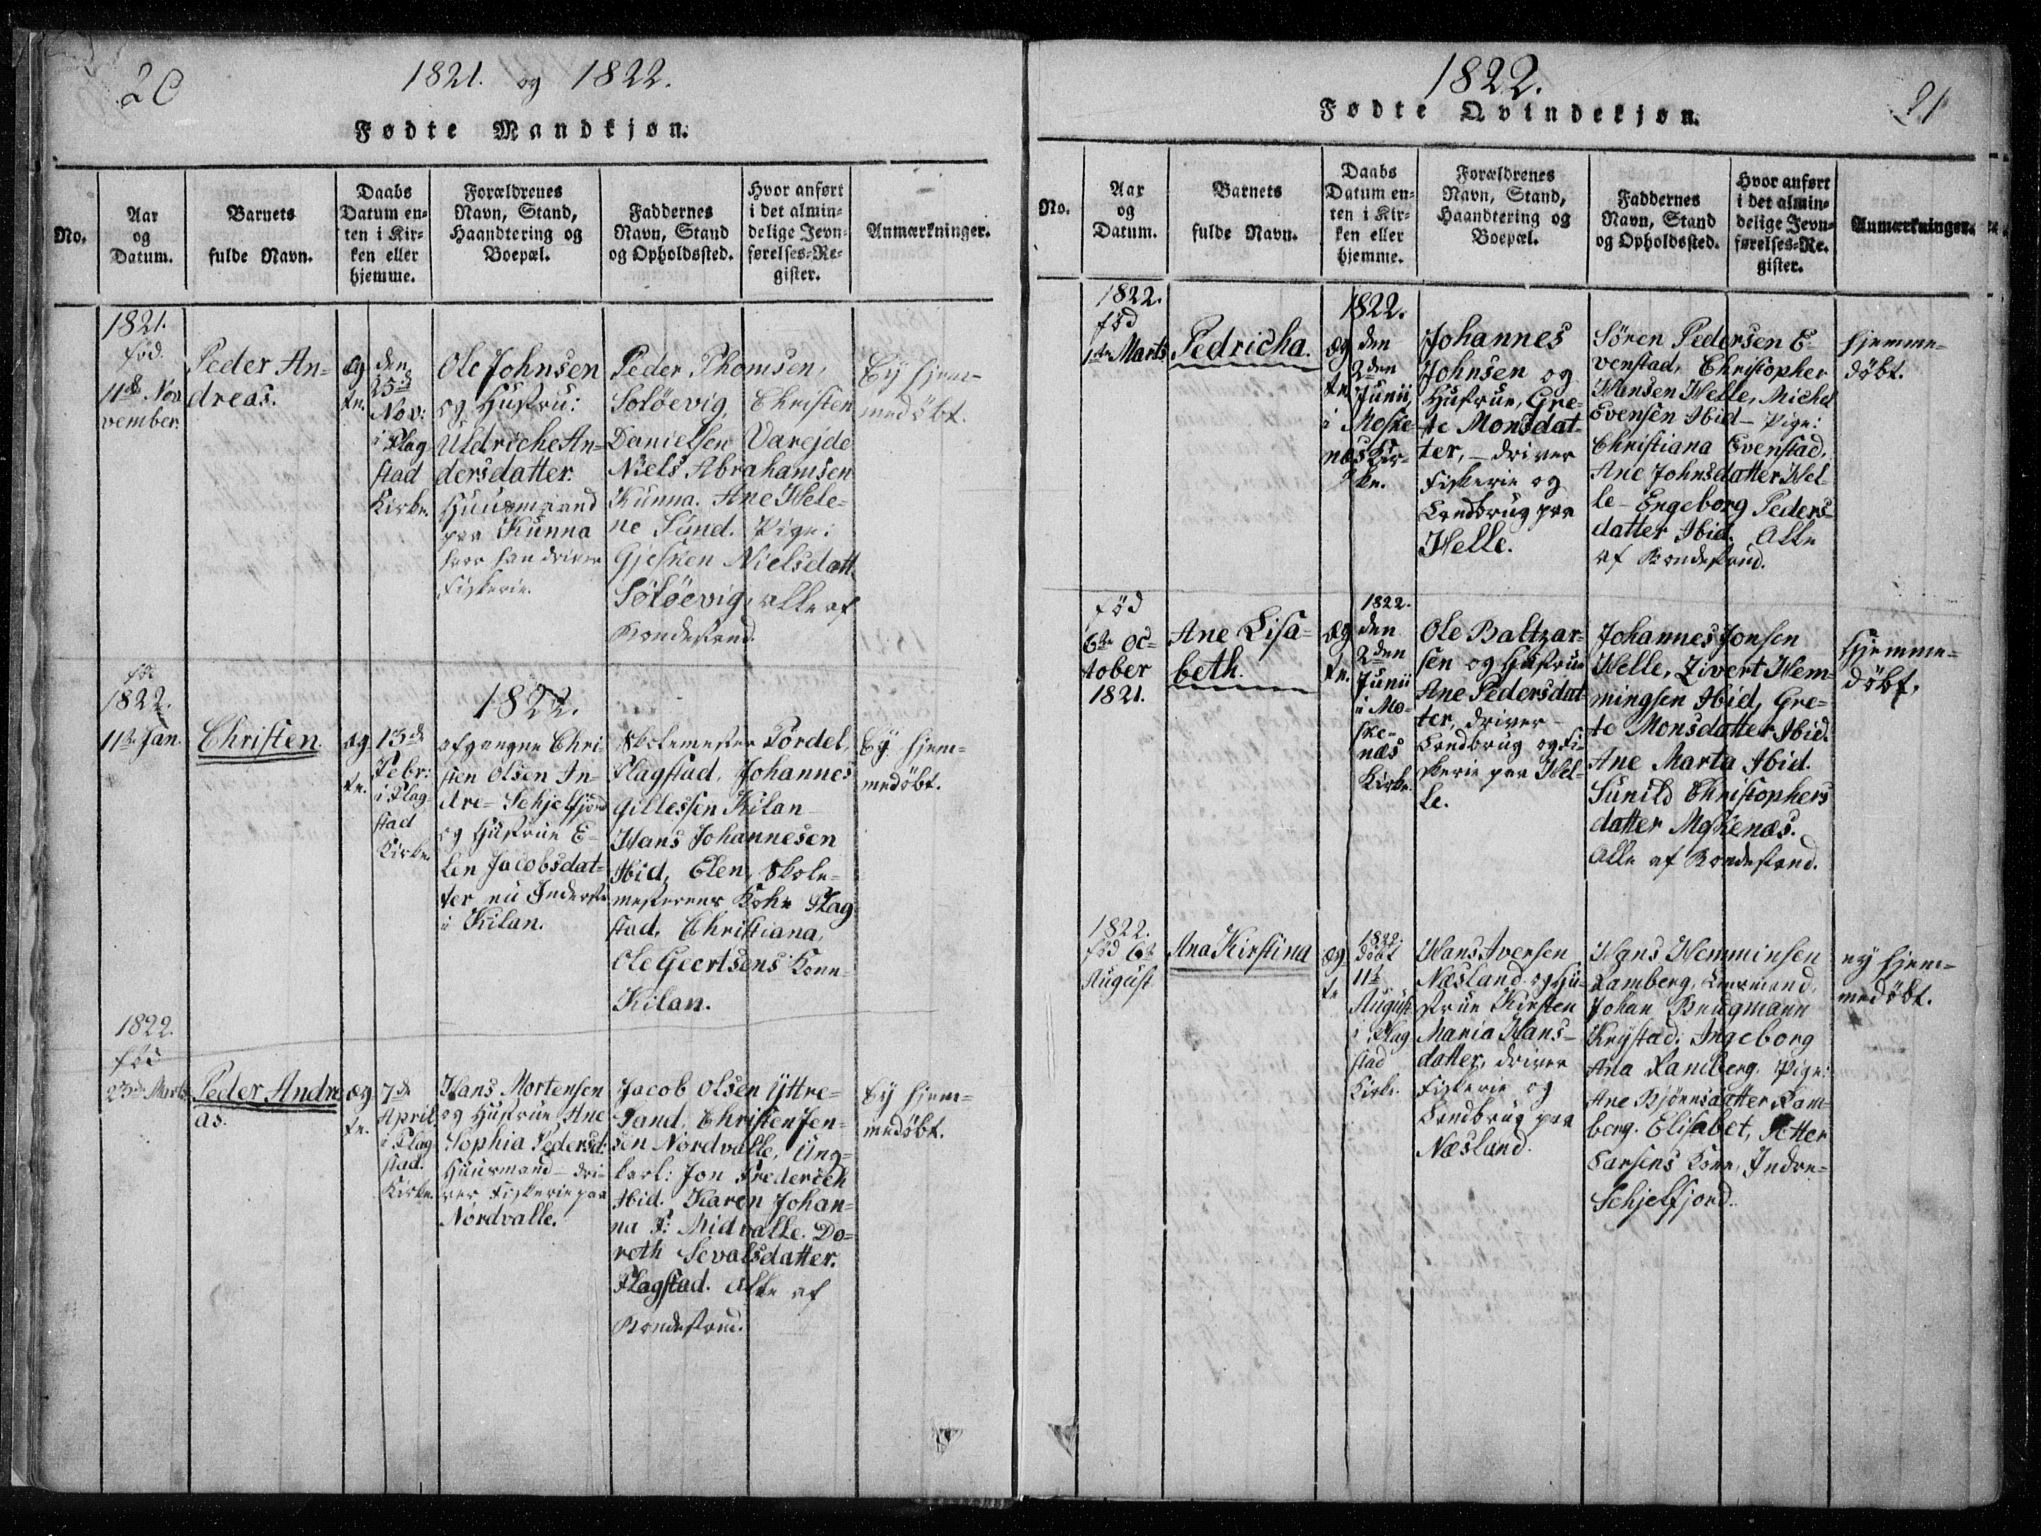 20
1821. og 1822.
Fødte Mandkjøn.
No.
Aar
og
Datum.
Barnets
fulde Navn.
Daabs
Datum en-
ten i Kir-
ken eller
hjemme.
Forældrenes
Navn, Stand,
Haandtering og
Boepæl.
Faddernes
Navn, Stand
og Opholdssted.
Hvor anført
i det almin-
delige Jevn-
førelses-Re-
gister.
Anmærkninger.
1821.
fød.
11te No-
vember.
Peder An-
dreas.
æg
te.
den
25de
Nov:
i Flag
stad
Kirke.
Ole Johnsen
og Hustru:
Uldriche An-
dersdatter.
Huusmand
paa Kunna
hvor han driver
Fiskerie.
Peder Thomsen,
Soløevig, Christen
Danielsen Varejde
Niels Abrahamsen
Kunna. Ane Hele-
ne Sund. Pige:
Gjesken Nielsdatt.
Soløevig, alle af
Bondestand.
Ey hjem-
medøbt.
fød
1822.
11te Jan.
Christen.
æg
te.
13de
Febr:
i Flag
stad
Kirke.
1822.
afgangne Chri
sten Olsen In-
dre- Schjelfjord
og Hustrue E-
len Jacobsdat-
ter nu Inderste
i Kilan.
Skolemester Tordel,
Flagstad, Johannes
Gillessen Kilan
Hans Johannesen
Ibid, Elen, Skole-
mesterens Kone Flag
stad, Christiana,
Ole Geertsens Kone
Kilan.
Ey hjem-
medøbt.
1822.
fød
23de Marts
Peder Andre
as.
æg
te.
7de
April
i Flag
stad.
Kirke.
Hans Mortensen
og Hustrue Ane
Sophia Pedersd:
Huusmand- dri-
ver Fiskerie paa
Nordvalle.
Jacob Olsen Yttre-
Sand, Christen Jen-
sen Nordvalle, Ung-
karl: Jon Frederich
Ibid. Karen Johan-
na P: Midvalle. Do-
roth Sevalsdatter.
Flagstad. alle af
Bondestand.
Ey hjem-
medøbt.
1822.
21
Fødte Qvindekjøn.
No.
Aar
og
Datum.
Barnets
fulde Navn.
Daabs
Datum en-
ten i Kir-
ken eller
hjemme.
Forældrenes
Navn, Stand,
Haandtering og
Boepæl.
Faddernes
Navn, Stand
og Opholdssted.
Hvor anført
i det almin-
delige Jevn-
førelses-Re-
gister.
Anmærkninger.
1822.
fød
1ste Marts
Pedricha.
æg
te.
1822.
den
2den
Junii
i Moske-
næs Kir-
ke.
Johannes
Johnsen og
Hustrue, Gre-
te Monsdat-
ter, - driver
Fiskerie og
Landbrug paa
Helle.
Søren Pedersen E-
venstad, Christopher
Hansen Helle, Michel
Evensen Ibid- Pige:
Christiana Evenstad,
Ane Johnsdatter Hel-
le- Engeborg Peders-
datter Ibid. Alle
af Bondestand.
hjemme-
døbt.
fød
6te Oc-
tober
1821.
Ane Lisa-
beth.
æg
te.
1822.
den
2den
Junii
i Mo-
ske-
næs
Kirke.
Ole Baltzar-
sen og Hustrue
Ane Pedersdat-
ter, driver
Landbrug og Fi-
skerie paa Hel-
le.
Johannes Jonsen
Helle, Zivert Hem-
mingsen Ibid, Gre-
te Monsdatter Ibid.
Ane Marta Ibid.
Sunild Christophers
datter Moskenæs.
Alle af Bondestand.
hjemme-
døbt.
1822.
fød 6te
August
Ana Kirstina
æg
te
1822.
døbt
11te
August
i Flag
stad
Kirke.
Hans Iversen
Næsland og Hu-
strue Kirsten
Maria Hans-
datter, driver
Fiskerie og
Landbrug paa
Næsland.
Hans Hemminsen
Ramberg, Leermand,
Johan Brugmann
Krystad. Ingeborg
Ana Ramberg. Pige:
Ane Bjørnsdatter Ram-
berg. Elisabet, Petter
Larsens Kone, Indre-
Schjelfjord.
ey hjem-
medøbt.